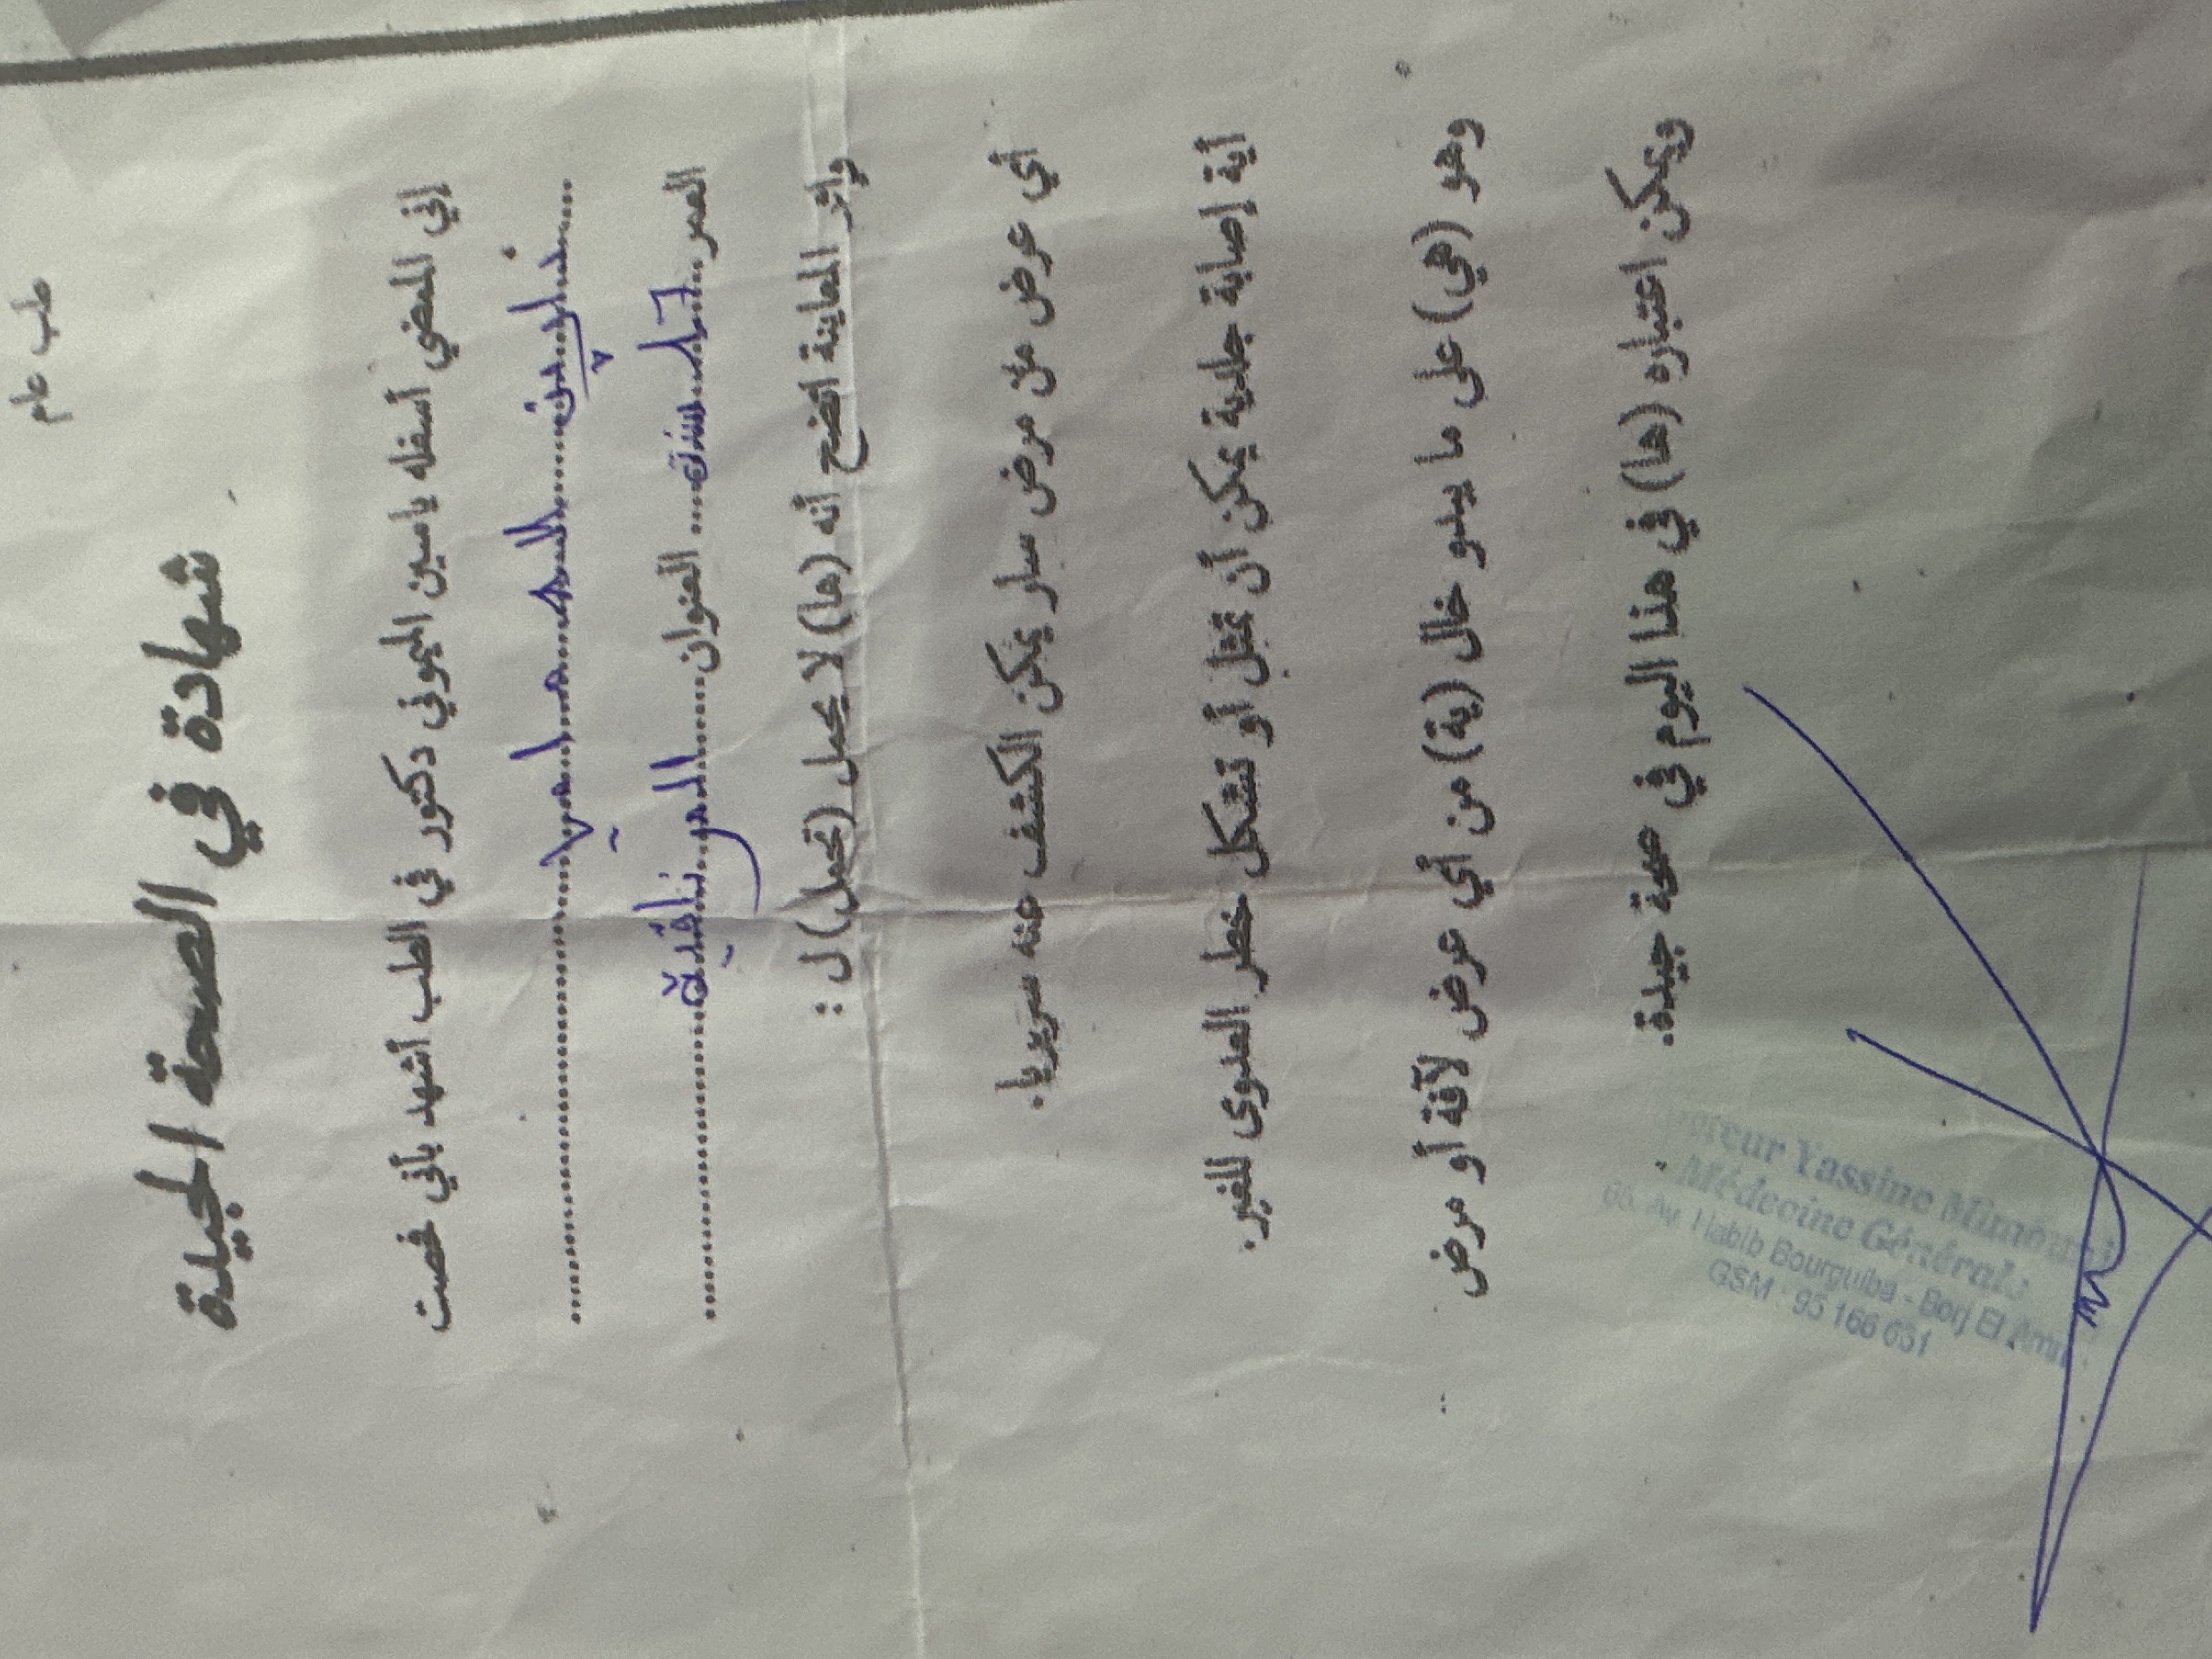 طب عام
شهادة في الصحة الجيدة
إني الممضي أسفله ياسين الميموني دكتور في الطب أشهد بأني فحصت
العمر ... سنة ... العنوان
وإثر المعاينة اتضح أنه (ها) لا يحمل (تحمل) ل :
أي عرض من مرض سار يمكن الكشف عنه سريريا.
أية إصابة جلدية يمكن أن تمثل أو تشكل خطر العدوى للغير.
وهو (هي) على ما يبدو خال (ية) من أي عرض لآفة أو مرض
ويمكن اعتباره (ها) في هذا اليوم في صحة جيدة.
cteur Yassine Mimouni
Médecine Générale
66, Av. Habib Bourguiba - Borj El Amri
GSM : 95 166 631